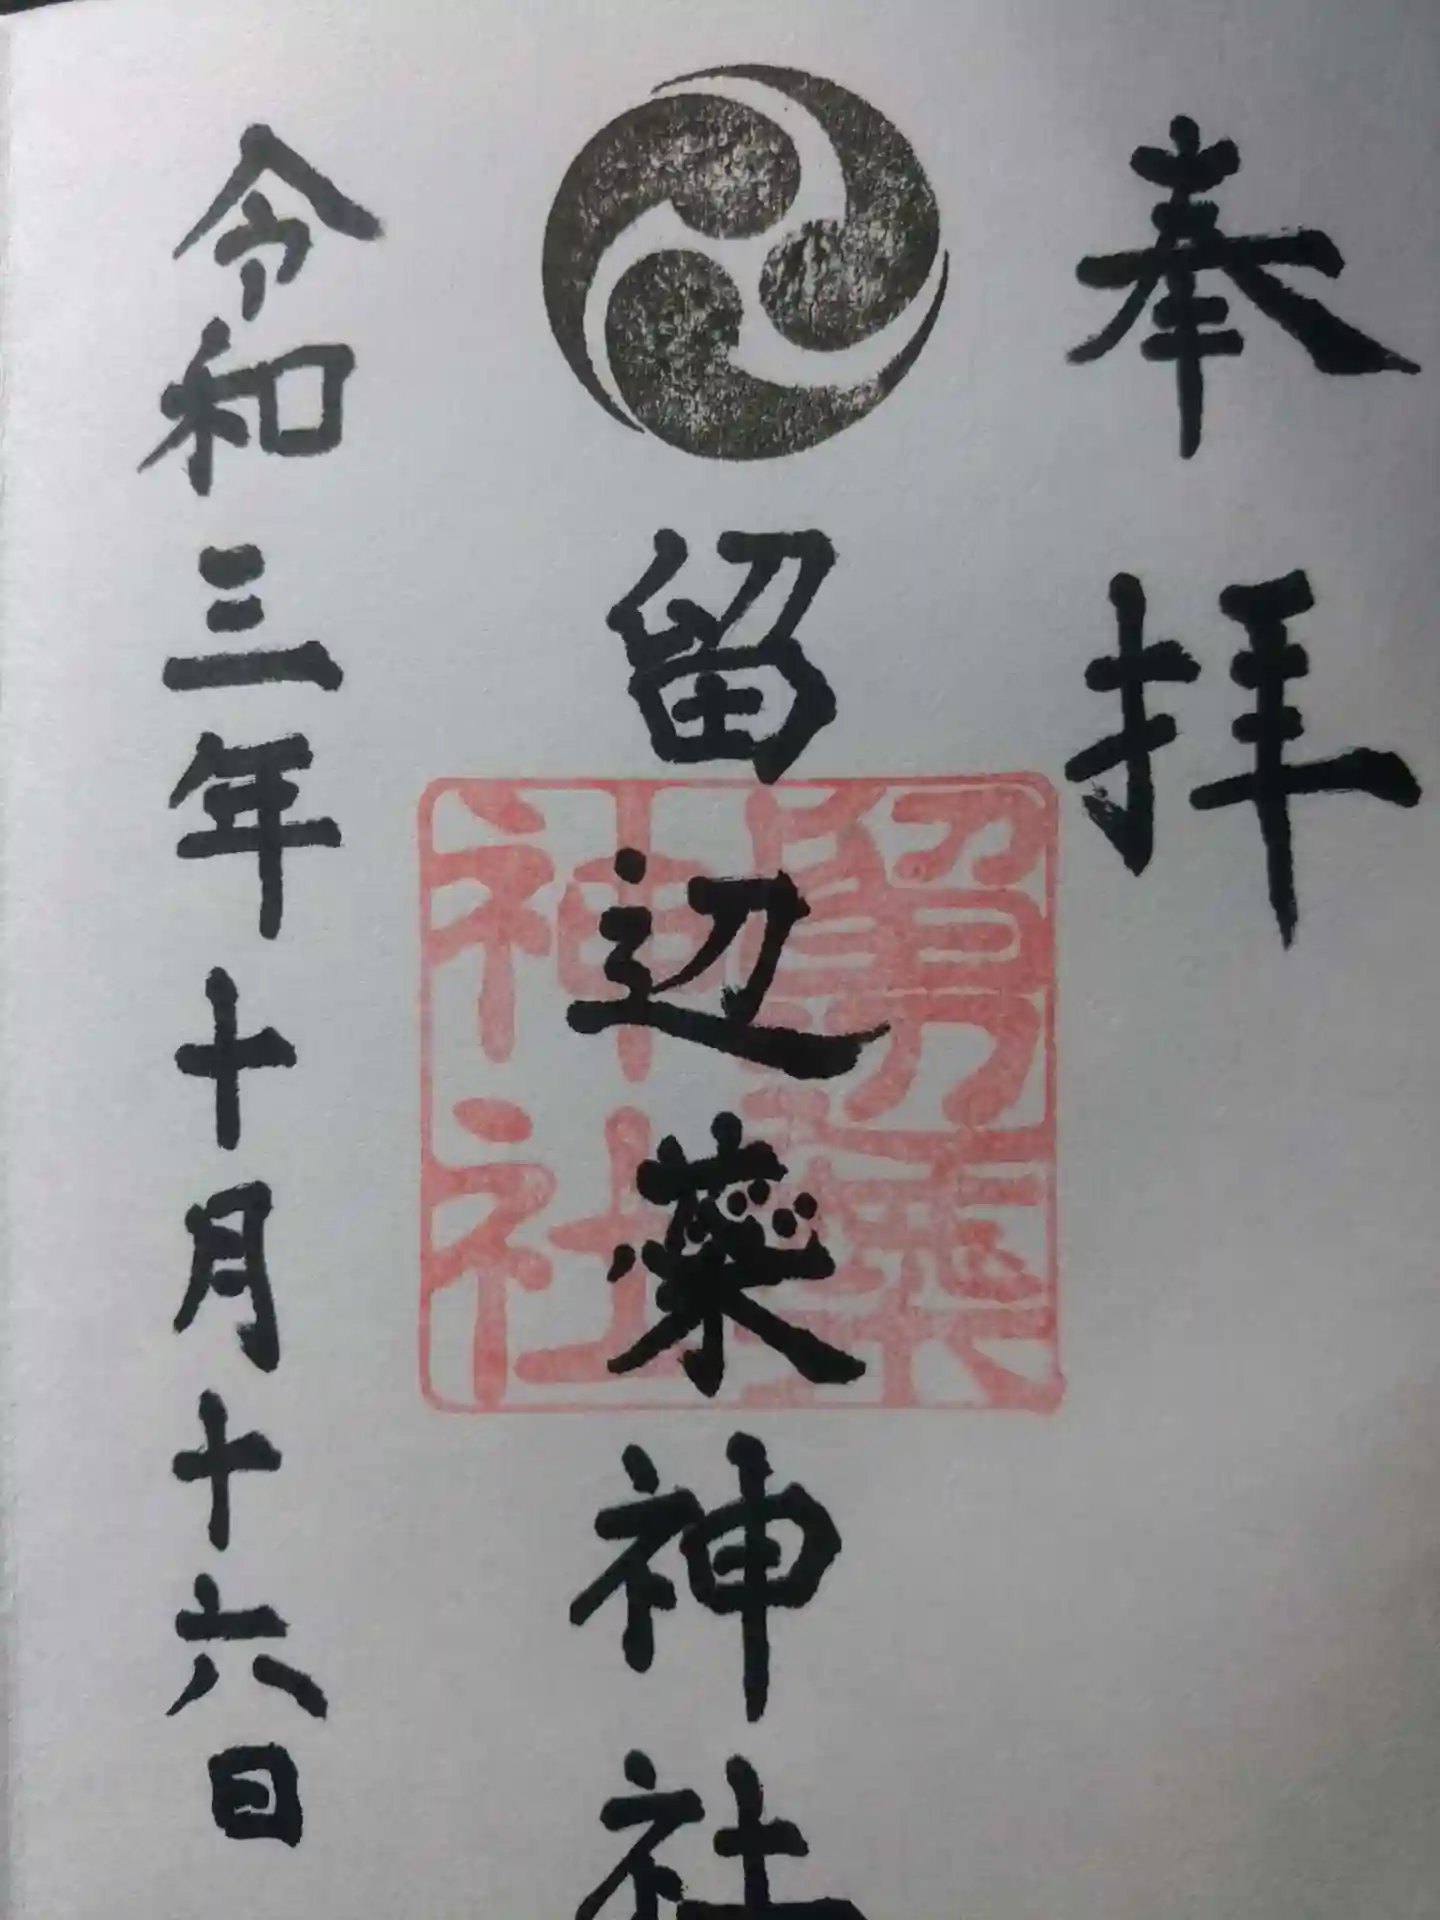 奉拝
留辺蘂神社
令和三年十月十六日
留辺蘂神社